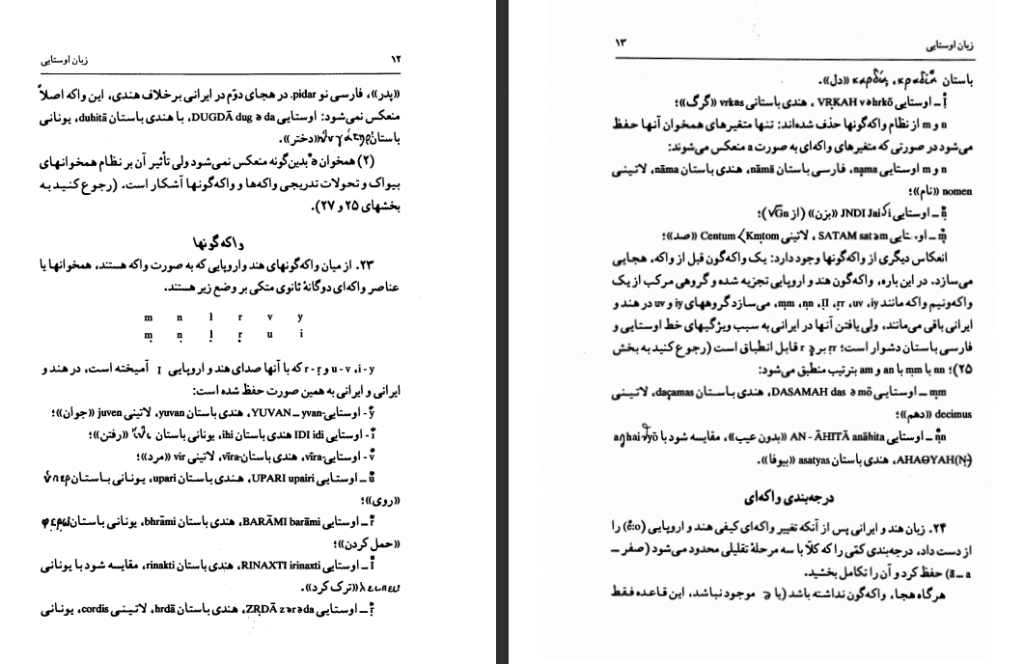 ۱۲ زبان اوستایی
«پدر»، فارسی نو pidar. در هجای دوّم در ایرانی برخلاف هندی، این واکه اصلاً
منعکس نمی‌شود: اوستایی DUGDĀ dug ə da، با هندی باستان duhitā، یونانی
باستان «دختر»).
(۲) همخوان ə بدین‌گونه منعکس نمی‌شود ولی تأثیر آن بر نظام همخوانهای
بیواک و تحولات تدریجی واکه‌ها و واکه‌گونها آشکار است. (رجوع کنید به
بخشهای ۲۵ و ۲۷).
واکه‌گونها
۲۳. از میان واکه‌گونهای هند و اروپایی که به صورت واکه هستند، همخوانها یا
عناصر واکه‌ای دوگانهٔ ثانوی متکی بر وضع زیر هستند.
m n l r v y
m̥ n̥ l̥ r̥ u i
u - v ،i - y و r - r̥ که با آنها صدای هند و اروپایی آمیخته است، در هند و
ایرانی و ایرانی به همین صورت حفظ شده است:
- اوستایی YUVAN – yvan-، هندی باستان yuvan، لاتینی juven «جوان»؛
- اوستایی IDI idi هندی باستان ihi، یونانی باستان «رفتن»؛
- اوستایی vīra-، هندی باستان vīra-، لاتینی vir «مرد»؛
– اوستایی UPARI upairi، هندی باستان upari، یونانی باستان
«روی»؛
– اوستایی BARĀMI barāmi، هندی باستان bhrāmi، یونانی باستان
«حمل کردن»؛
– اوستایی RINAXTI irinaxti، هندی باستان rinakti، مقایسه شود با یونانی
«ترک کرد».
– اوستایی ZR̥DĀ zərəda، هندی باستان hrdā، لاتینی cordis، یونانی
۱۳ زبان اوستایی
باستان «دل»).
– اوستایی VR̥KAH vəhrkō، هندی باستانی vrkas «گرگ»؛
n و m از نظام واکه‌گونها حذف شده‌اند: تنها متغیرهای همخوان آنها حفظ
می‌شود در صورتی که متغیرهای واکه‌ای به صورت a منعکس می‌شوند:
n و m اوستایی nąma، فارسی باستان nāmā، هندی باستان nāma، لاتینی
nomen «نام»؛
n̥ – اوستایی JNDI Jai «بزن» (از √Gn)؛
m̥ – اوستایی SATAM satəm، لاتینی Centum < Km̥tom «صد»؛
انعکاس دیگری از واکه‌گونها وجود دارد: یک واکه‌گون قبل از واکه، هجایی
می‌سازد. در این باره، واکه‌گون هند و اروپایی تجزیه شده و گروهی مرکب از یک
واکه‌ونیم واکه مانند iy، uv، r̥r، l̥l، n̥n، m̥m، می‌سازد گروههای iy و uv در هند و
ایرانی باقی می‌مانند، ولی یافتن آنها در ایرانی به سبب ویژگیهای خط اوستایی و
فارسی باستان دشوار است؛ r̥r بر r قابل انطباق است (رجوع کنید به بخش
۲۵)؛ nn با m̥m با an و am بترتیب منطبق می‌شود:
m̥m – اوستایی DASAMAH das ə mō، هندی باستان daçamas، لاتینی
decimus «دهم»؛
n̥n – اوستایی AN - ĀHITĀ anāhita «بدون عیب»، مقایسه شود با
AHAΘYAH(N-)، هندی باستان asatyas «بیوفا».
درجه‌بندی واکه‌ای
۲۴. زبان هند و ایرانی پس از آنکه تغییر واکه‌ای کیفی هند و اروپایی (ĕ:o) را
از دست داد، درجه‌بندی کتی را که کلّاً با سه مرحلهٔ تقلیلی محدود می‌شود (صفر –
ā – a) حفظ کرد و آن را تکامل بخشید.
هرگاه هجا، واکه‌گون نداشته باشد (یا ə موجود نباشد، این قاعده فقط